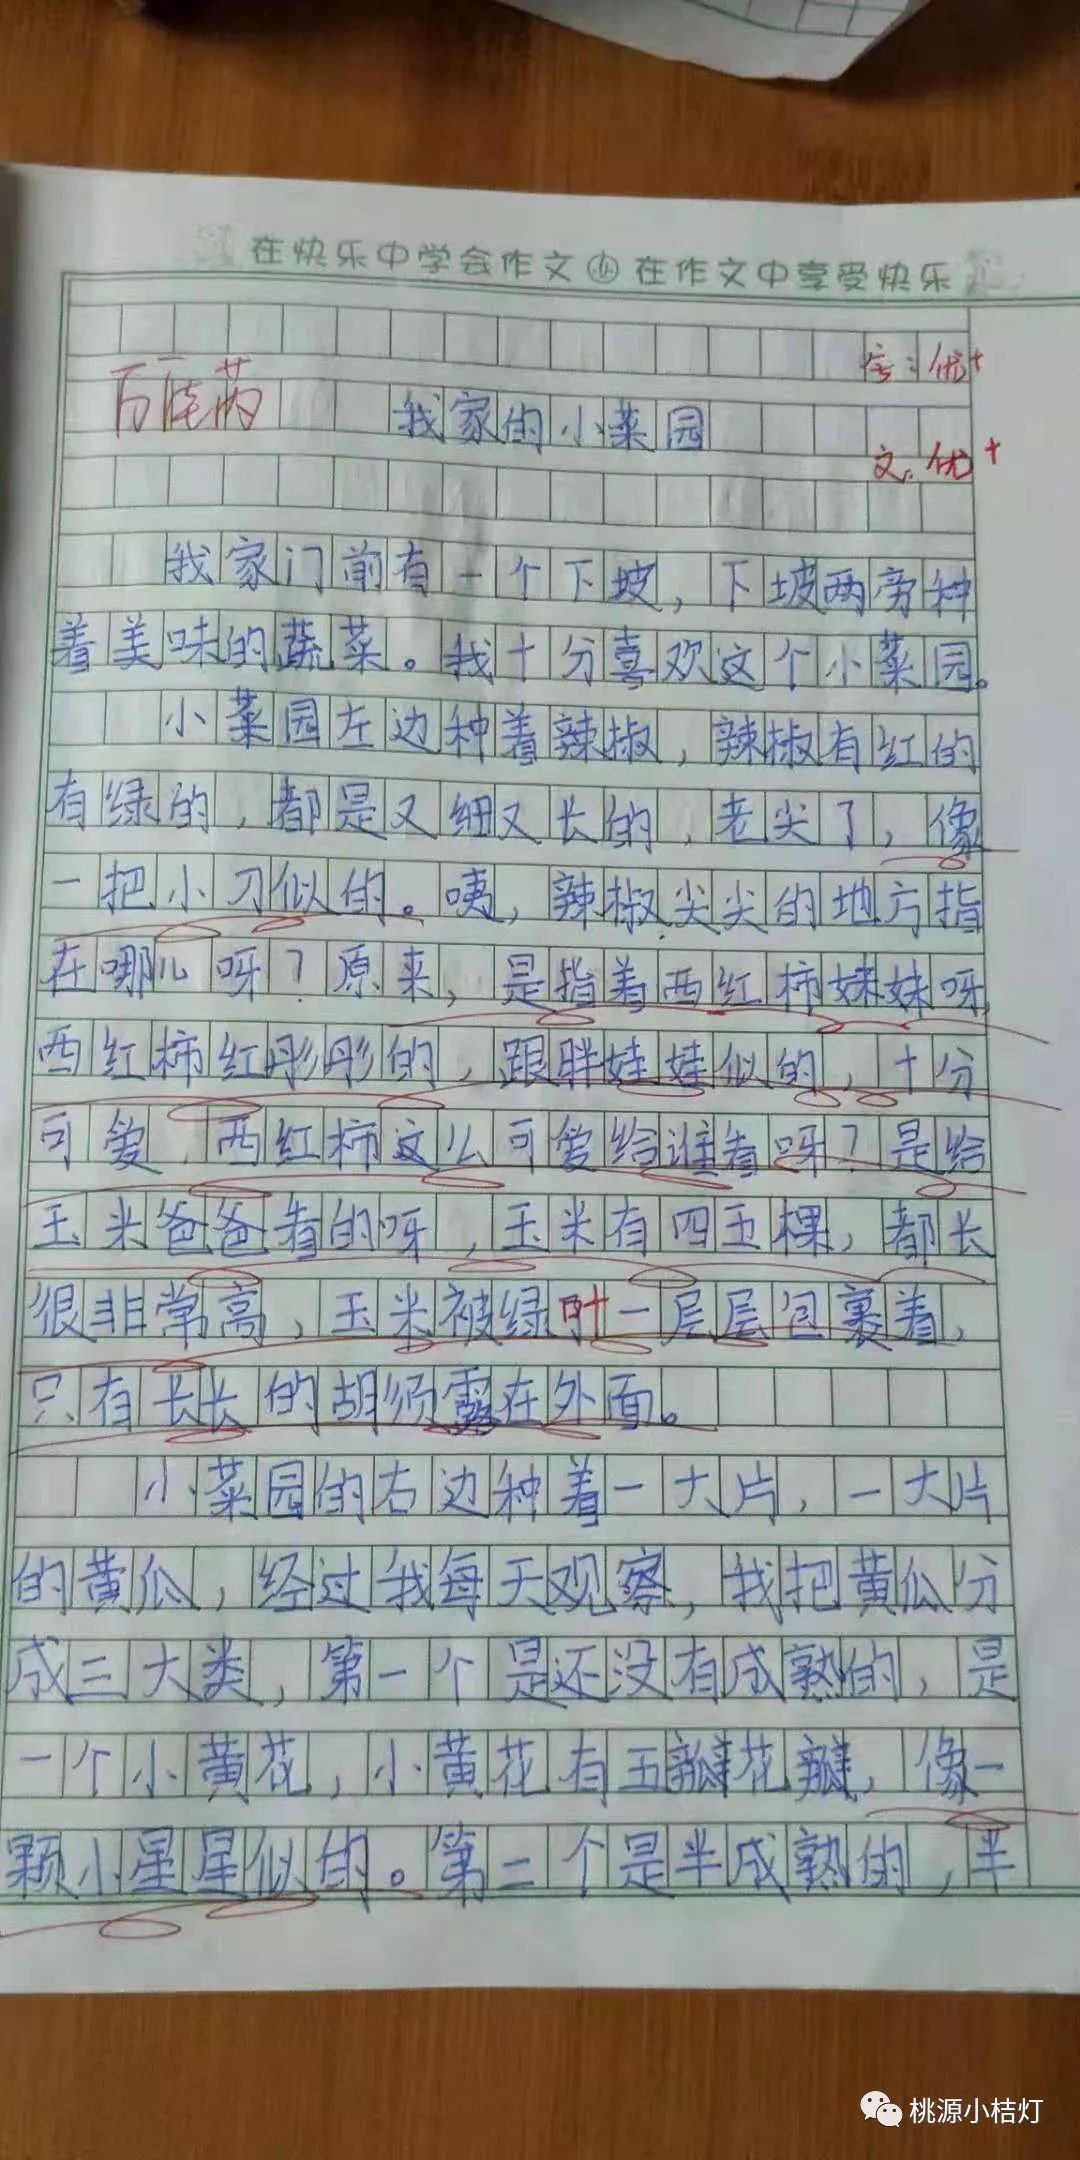 在快乐中学会作文 在作文中享受快乐
书:优+
我家的小菜园
文:优+
我家门前有一个下坡,下坡两旁种
着美味的蔬菜。我十分喜欢这个小菜园。
小菜园左边种着辣椒,辣椒有红的
有绿的,都是又细又长的,老尖了,像
一把小刀似的。咦,辣椒尖尖的地方指
在哪儿呀?原来,是指着西红柿妹妹呀,
西红柿红彤彤的,跟胖娃娃似的,十分
可爱,西红柿这么可爱给谁看呀?是给
玉米爸爸看的呀,玉米有四五棵,都长
很非常高,玉米被绿叶一层层包裹着,
只有长长的胡须露在外面。
小菜园的右边种着一大片,一大片
的黄瓜,经过我每天观察,我把黄瓜分
成三大类,第一个是还没有成熟的,是
一个小黄花,小黄花有五瓣花瓣,像一
颗小星星似的。第二个是半成熟的,半
桃源小桔灯